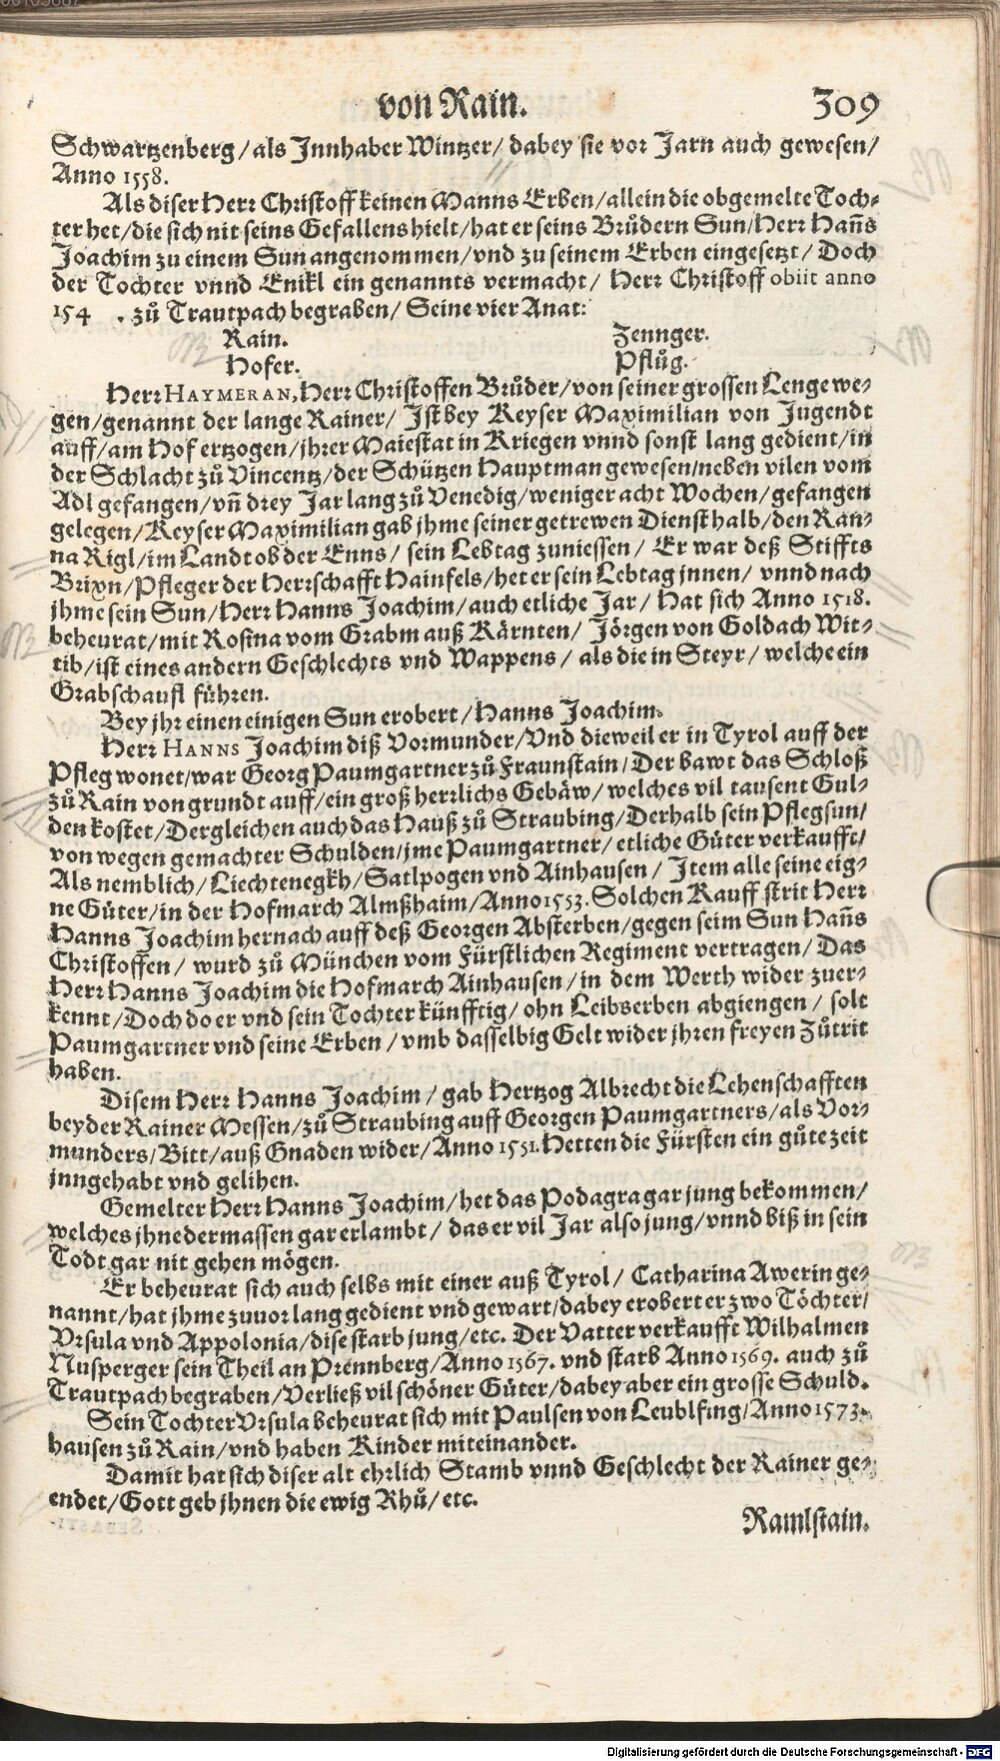 von Rain. 309
Schwartzenberg/als Innhaber Wintzer/dabey sie vor Jarn auch gewesen/
Anno 1558.
Als diser Herr Christoff keinen Manns Erben/allein die obgemelte Toch⸗
ter het/die sich nit seins Gefallens hielt/hat er seins Brůdern Sun/Herr Hañs
Joachim zu einem Sun angenommen/vnd zu seinem Erben eingesetzt/Doch
der Tochter vnnd Enikl ein genannts vermacht/Herr Christoff obiit anno
154 . zů Trautpach begraben/Seine vier Anat:
Rain. Zennger.
Hofer. Pflůg.
Herr HAYMERAN, Herr Christoffen Brůder/von seiner grossen Lenge we⸗
gen/genannt der lange Rainer/Ist bey Keyser Maximilian von Jugendt
auff/am Hof ertzogen/jhrer Maiestat in Kriegen vnnd sonst lang gedient/in
der Schlacht zů Vincentz/der Schützen Hauptman gewesen/neben vilen vom
Adl gefangen/vñ drey Jar lang zů Venedig/weniger acht Wochen/gefangen
gelegen/Keyser Maximilian gab jhme seiner getrewen Diensthalb/den Ran⸗
na Rigl/im Landt ob der Enns/sein Lebtag zuniessen/Er war deß Stiffts
Brixn/Pfleger der Herrschafft Hainfels/het er sein Lebtag jnnen/vnnd nach
jhme sein Sun/Herr Hanns Joachim/auch etliche Jar/Hat sich Anno 1518.
beheurat/mit Rosina vom Grabm auß Kärnten/Jörgen von Goldach Wit⸗
tib/ist eines andern Geschlechts vnd Wappens/als die in Steyr/welche ein
Grabschaufl führen.
Bey jhr einen einigen Sun erobert/Hanns Joachim.
Herr HANNS Joachim diß Vormunder/Vnd dieweil er in Tyrol auff der
Pfleg wonet/war Georg Paumgartner zů Fraunstain/Der bawt das Schloß
zů Rain von grundt auff/ein groß herrlichs Gebäw/welches vil tausent Gul⸗
den kostet/Dergleichen auch das Hauß zů Straubing/Derhalb sein Pflegsun/
von wegen gemachter Schulden/jme Paumgartner/etliche Güter verkaufft/
Als nemblich/Liechtenegkh/Satlpogen vnd Ainhausen/Item alle seine eig⸗
ne Güter/in der Hofmarch Almßhaim/Anno 1553. Solchen Kauff strit Herr
Hanns Joachim hernach auff deß Georgen Absterben/gegen seim Sun Hañs
Christoffen/wurd zů München vom Fürstlichen Regiment vertragen/Das
Herr Hanns Joachim die Hofmarch Ainhausen/in dem Werth wider zuer⸗
kennt/Doch do er vnd sein Tochter künfftig/ohn Leibserben abgiengen/solt
Paumgartner vnd seine Erben/vmb dasselbig Gelt wider jhren freyen Zůtrit
haben.
Disem Herr Hanns Joachim/gab Hertzog Albrecht die Lehenschafften
beyder Rainer Messen/zů Straubing auff Georgen Paumgartners/als Vor⸗
munders/Bitt/auß Gnaden wider/Anno 1551. Hetten die Fürsten ein gůte zeit
jnngehabt vnd gelihen.
Gemelter Herr Hanns Joachim/het das Podagra gar jung bekommen/
welches jhne dermassen gar erlambt/das er vil Jar also jung/vnnd biß in sein
Todt gar nit gehen mögen.
Er beheurat sich auch selbs mit einer auß Tyrol/Catharina Awerin ge⸗
nannt/hat jhme zuuor lang gedient vnd gewart/dabey erobert er zwo Töchter/
Vrsula vnd Appolonia/dise starb jung/etc. Der Vatter verkaufft Wilhalmen
Nusperger sein Theil an Prennberg/Anno 1567. vnd starb Anno 1569. auch zů
Trautpach begraben/Verließ vil schöner Güter/dabey aber ein grosse Schuld.
Sein Tochter Vrsula beheurat sich mit Paulsen von Leublfing/Anno 1573.
hausen zů Rain/vnd haben Kinder miteinander.
Damit hat sich diser alt ehrlich Stamb vnnd Geschlecht der Rainer ge⸗
endet/Gott geb jhnen die ewig Rhů/etc.
Ramlstain.
Digitalisierung gefördert durch die Deutsche Forschungsgemeinschaft - DFG